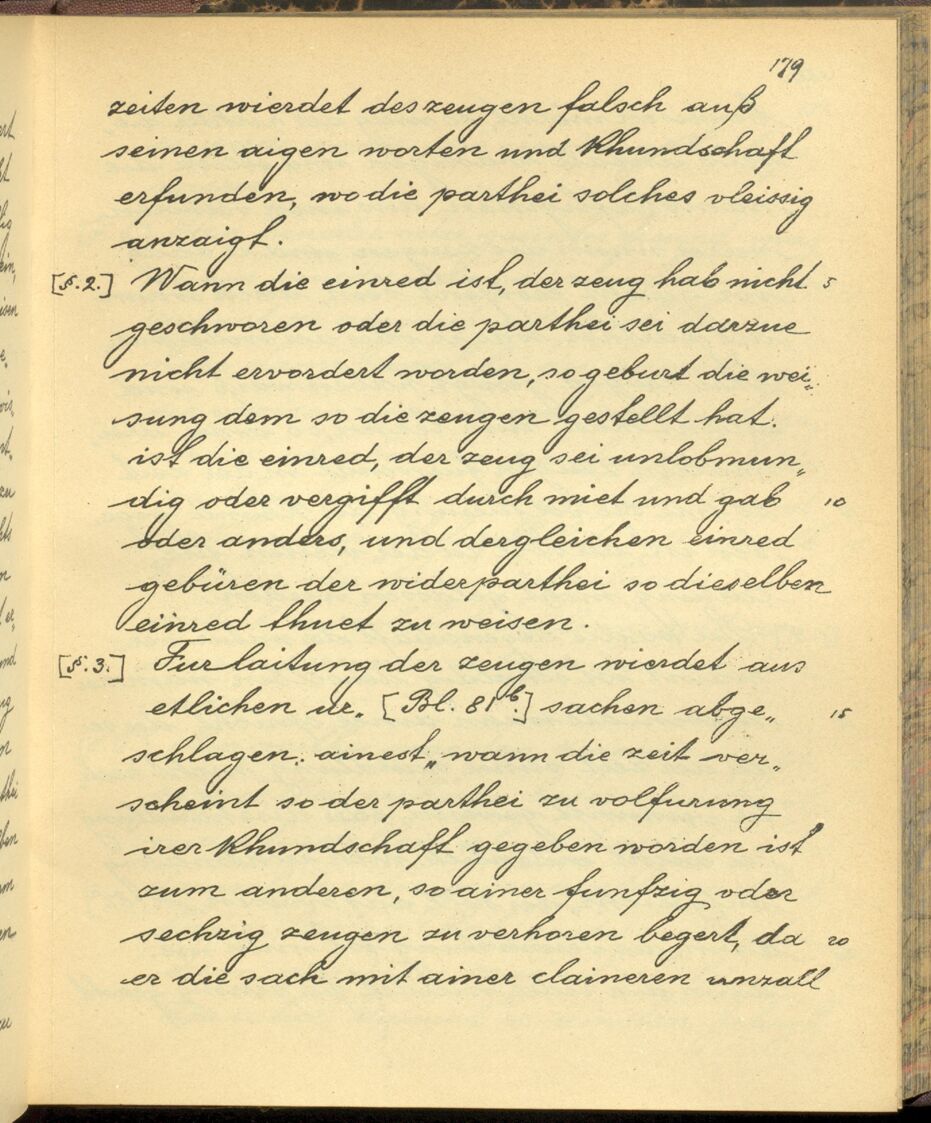 179
zeiten wierdet des zeugen falsch auß
seinen aigen worten und khundschaft
erfunden, wo die parthei solches vleissig
anzaigt.
[§.2.] Wann die einred ist, der zeug hab nicht 5
geschworen oder die parthei sei darzue
nicht ervordert worden, so geburt die wei„
sung dem so die zeugen gestellt hat.
ist die einred, der zeug sei unlobmun„
dig oder vergifft durch miet und gab 10
oder anders, und dergleichen einred
gebüren der widerparthei so dieselben
einred thuet zu weisen.
[§.3.] Furlaitung der zeugen wierdet aus
etlichen ur„ [Bl. 81b] sachen abge„ 15
schlagen. ainest„ wann die zeit ver„
scheint so der parthei zu volfurung
irer khundschaft gegeben worden ist
zum anderen, so ainer funfzig oder
sechzig zeugen zu verhoren begert, da 20
er die sach mit ainer claineren unzall